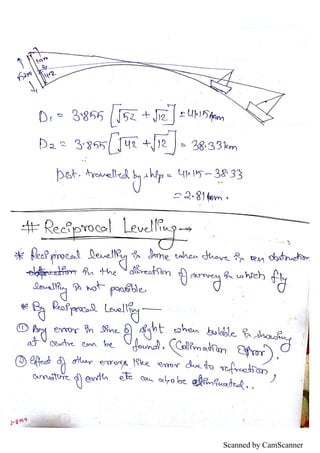 52m
10m
42
D1 = 3.855 [√52 + √12] = 41.15 km
D2 = 3.855 [√42 + √12] = 38.33 km
Dst. travelled by ship = 41.15 - 38.33
= 2.81 km.
# Reciprocal Levelling →
* Reciprocal levelling is done when there is an obstruction
in the direction of survey in which fly
levelling is not possible.
* By Reciprocal Levelling —
① Any error in line of sight when bubble is showing
at centre can be found. (Collimation Error).
② Effect of other errors like error due to refraction,
curvature of earth etc can also be eliminated..
Scanned by CamScanner